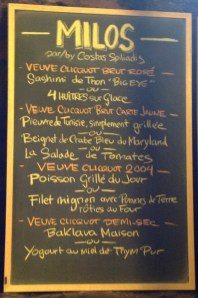 MILOS
par/by Costas Spiliadis
- VEUVE CLICQUOT BRUT ROSÉ
Sashimi de Thon "BIG EYE"
- OU -
4 HUÎTRES sur Glace
- VEUVE CLICQUOT BRUT CARTE JAUNE -
Pieuvre de Tunisie, simplement grillée
- OU -
Beignet de Crabe Bleu du Maryland
- OU -
La Salade de Tomates
- VEUVE CLICQUOT 2004 -
Poisson Grillé du Jour
- OU -
Filet mignon avec Pommes de Terre
roties au Four
- VEUVE CLICQUOT DEMI-SEC
Baklava Maison
- OU -
Yogourt au miel de Thym Pur